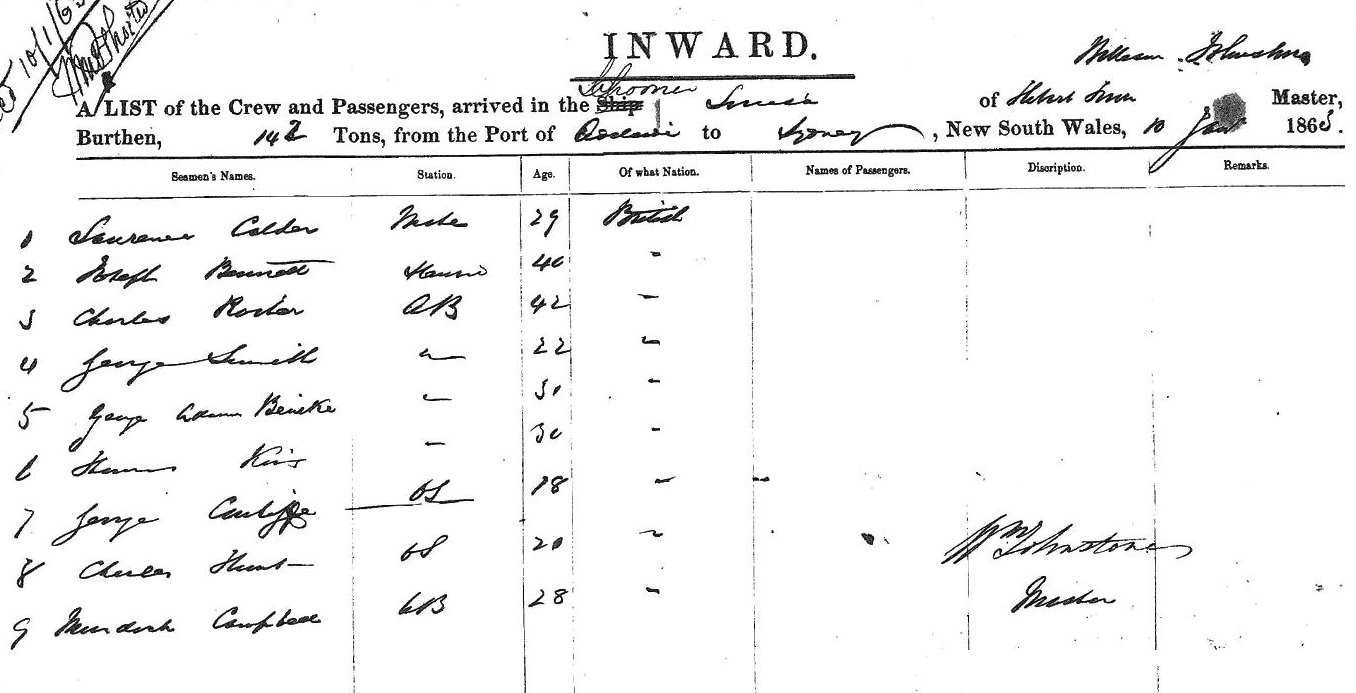 10/1/65
INWARD.
Schooner
William Johnstone
A LIST of the Crew and Passengers, arrived in the Ship of Hobart Town Master,
Burthen, 142 Tons, from the Port of to Sydney, New South Wales, 10 Jany 1865.
Seamen's Names. Station. Age. Of what Nation. Names of Passengers. Discription. Remarks.
1 Laurance Calder Mate 29 British
2 Joseph Bennett 40 "
3 Charles AB 42 "
4 George Smith " 22 "
5 George Beneke " 30 "
6 Thomas King " 30 "
7 George Cunliffe OS 18 " "
8 Charles Hunt OS 20 "
9 Murdoch Campbell AB 28 "
Wm Johnstone
Master